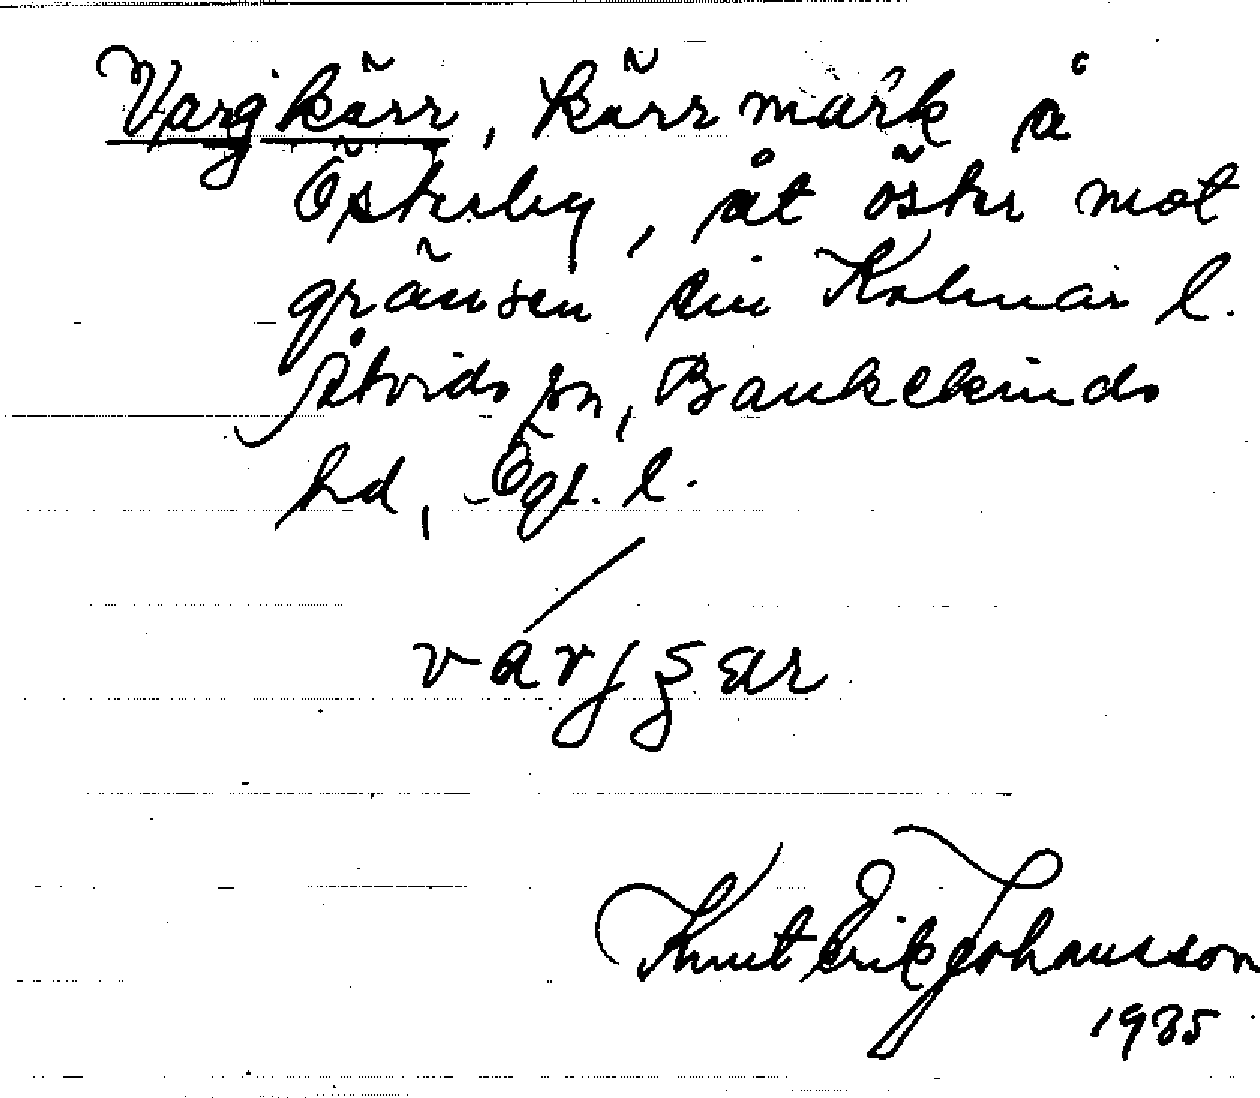 Vargkärr, kärrmark å
Österby, åt öster mot
gränsen till Kalmar l.
Åtvids sn, Bankekinds
hd, Ögl. l.
Knut Erik Johansson
1935